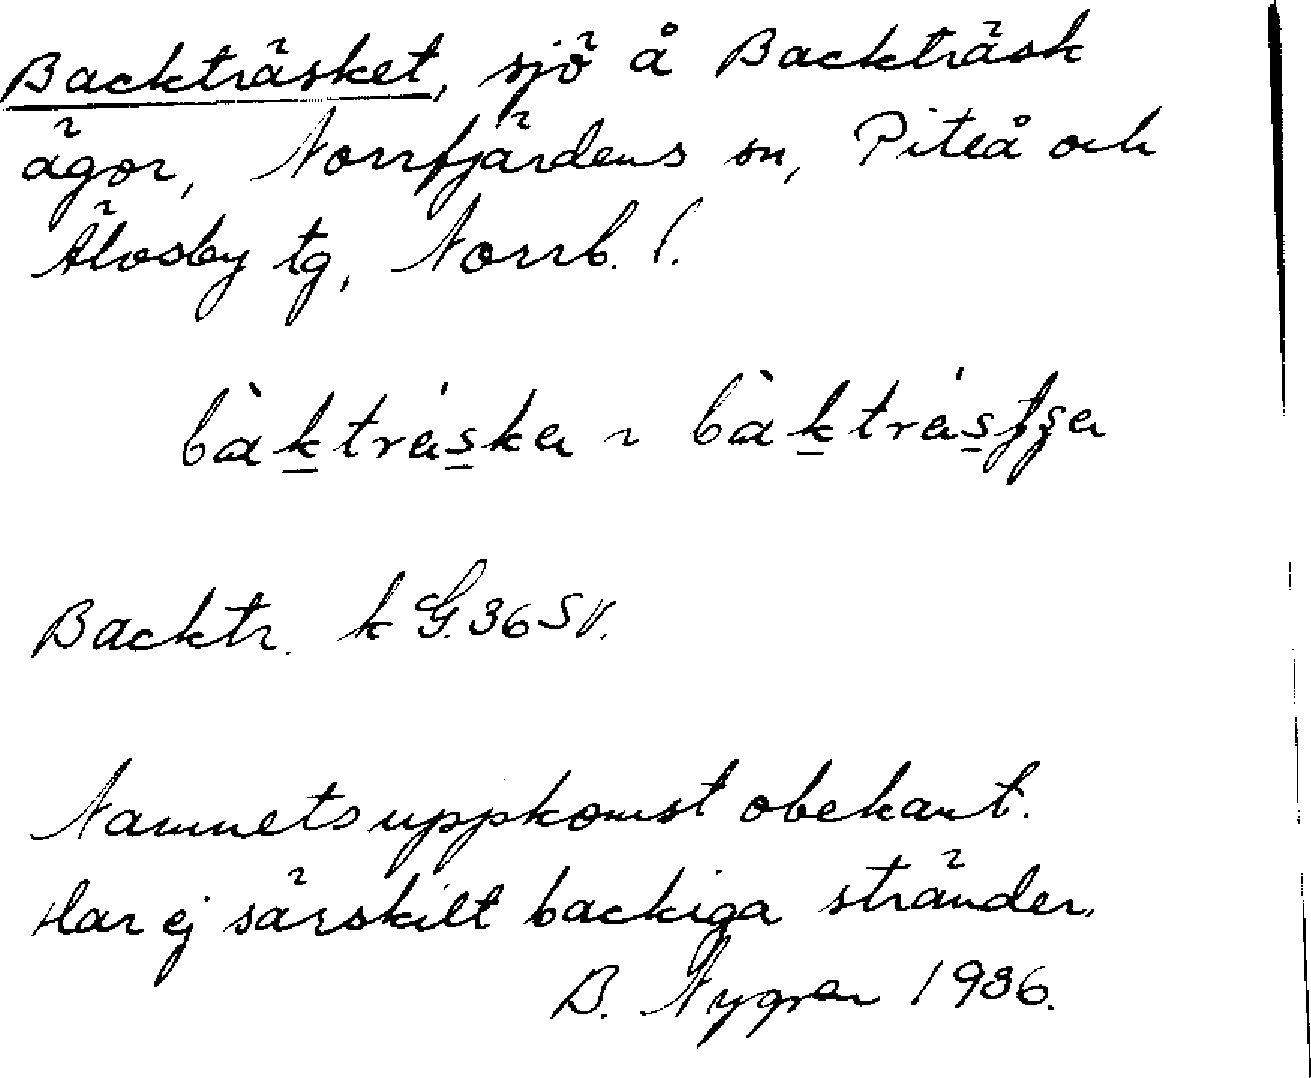 Backträsket, sjö å Backträsk
ägor, Norrfjärdens sn, Piteå och
Älvsby tg, Norrb. l.
bàktráska ~ bàktrásʃʂa
Backtr. k G. 36 SV.
Namnets uppkomst obekant.
Har ej särskilt backiga stränder.
B. Nygren 1936.